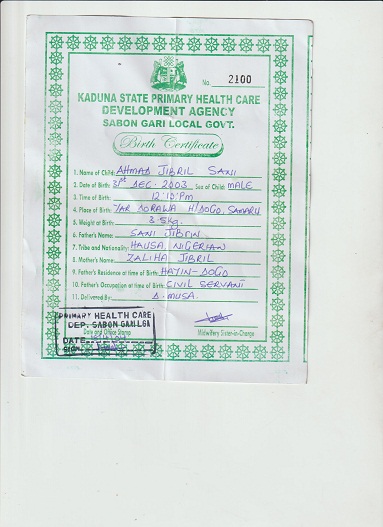 No. 2100
KADUNA STATE PRIMARY HEALTH CARE
DEVELOPMENT AGENCY
SABON GARI LOCAL GOVT.
Birth Certificate
1. Name of Child: AHMAD JIBRIL SANI
2. Date of Birth: 31st DEC. 2003 Sex of Child: MALE
3. Time of Birth: 12:10pm
4. Place of Birth: YAR DORAWA H/DOGO, SAMARU
5. Weight at Birth: 3.5kg
6. Father's Name: SANI JIBRIN
7. Tribe and Nationality: HAUSA, NIGERIAN
8. Mother's Name: ZALIHA JIBRIL
9. Father's Residence at time of Birth: HAYIN-DOGO
10. Father's Occupation at time of Birth: CIVIL SERVANT
11. Delivered By: D. MUSA
PRIMARY HEALTH CARE
DEP. SABON GARI LGA
Date and Office Stamp
Midwifery Sister-in-Charge
DATE
SIGN